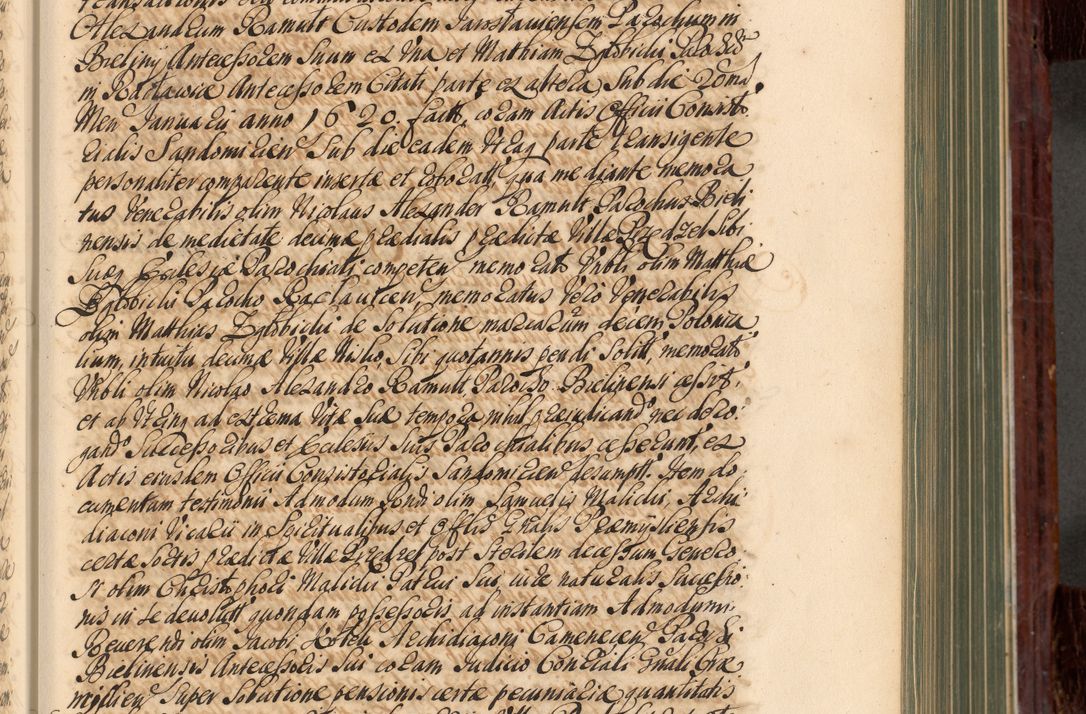 Alexandrum Ramult Custodem Jaroslaviensem Parochum in
Bieliny Antecessorem Suum ex Una et Mathiam Zglobicki Paroch
in Raclawice Antecessorem Citati parte ex altera Sub die 20ma
Men Januarii anno 1620 fact, coram Actis Officii Consisto
rialis Sandomirien Sub die eadem Utraq parte transigente
personaliter comparente insertæ et roborat, qua mediante memora
tus Venerabilis olim Nicolaus Alexander Ramult Parochus Bieli
nensis de medietate decimæ prædialis prædictæ Villæ Przedzel Sibi
Suæq Ecclesiæ Parochiali competen memorato Vnbli olim Matthiæ
Zglobicki Parocho Raclavicen memoratus Vero Venerabilis
olim Matthias Zglobicki de Solutione marcarum decem Polonica
lium, intuitu decimæ Villæ Nisko, Sibi quotannis pendi Solit, memorato
Vnbli olim Nicolao Alexandro Ramult Parocho Bielinensi cessit,
et ab Utrinq ad extrema Vitæ Suæ tempora nihil præjudicand nec dero
gand Successoribus et Ecclesiis Suis Parochialibus cesserunt, ex
Actis eiusdem Officii Consistorialis Sandomirien desumpt. Item do
cumentum testimonii Admodum Rndi olim Samuelis Malicki, Archi
diaconi Vicarii in Spiritualibus et Offlis Gnalis Præmysliensis
certæ Sortis prædictæ Villæ Przedzel post Sterilem decessum Genero
si olim Christophori Malicki Patrui Sui, iure naturalis Successio
nis in Se devolut quondam possessoris, ad instantiam Admodum
Reverendi olim Jacobi Archidiaconi Camenecen Parochi
Bielinensis Antecessoris Sui coram Judicio Consiali Gnali Præ
mislien Super Solutione pensionis certæ pecuniariæ quantitatis